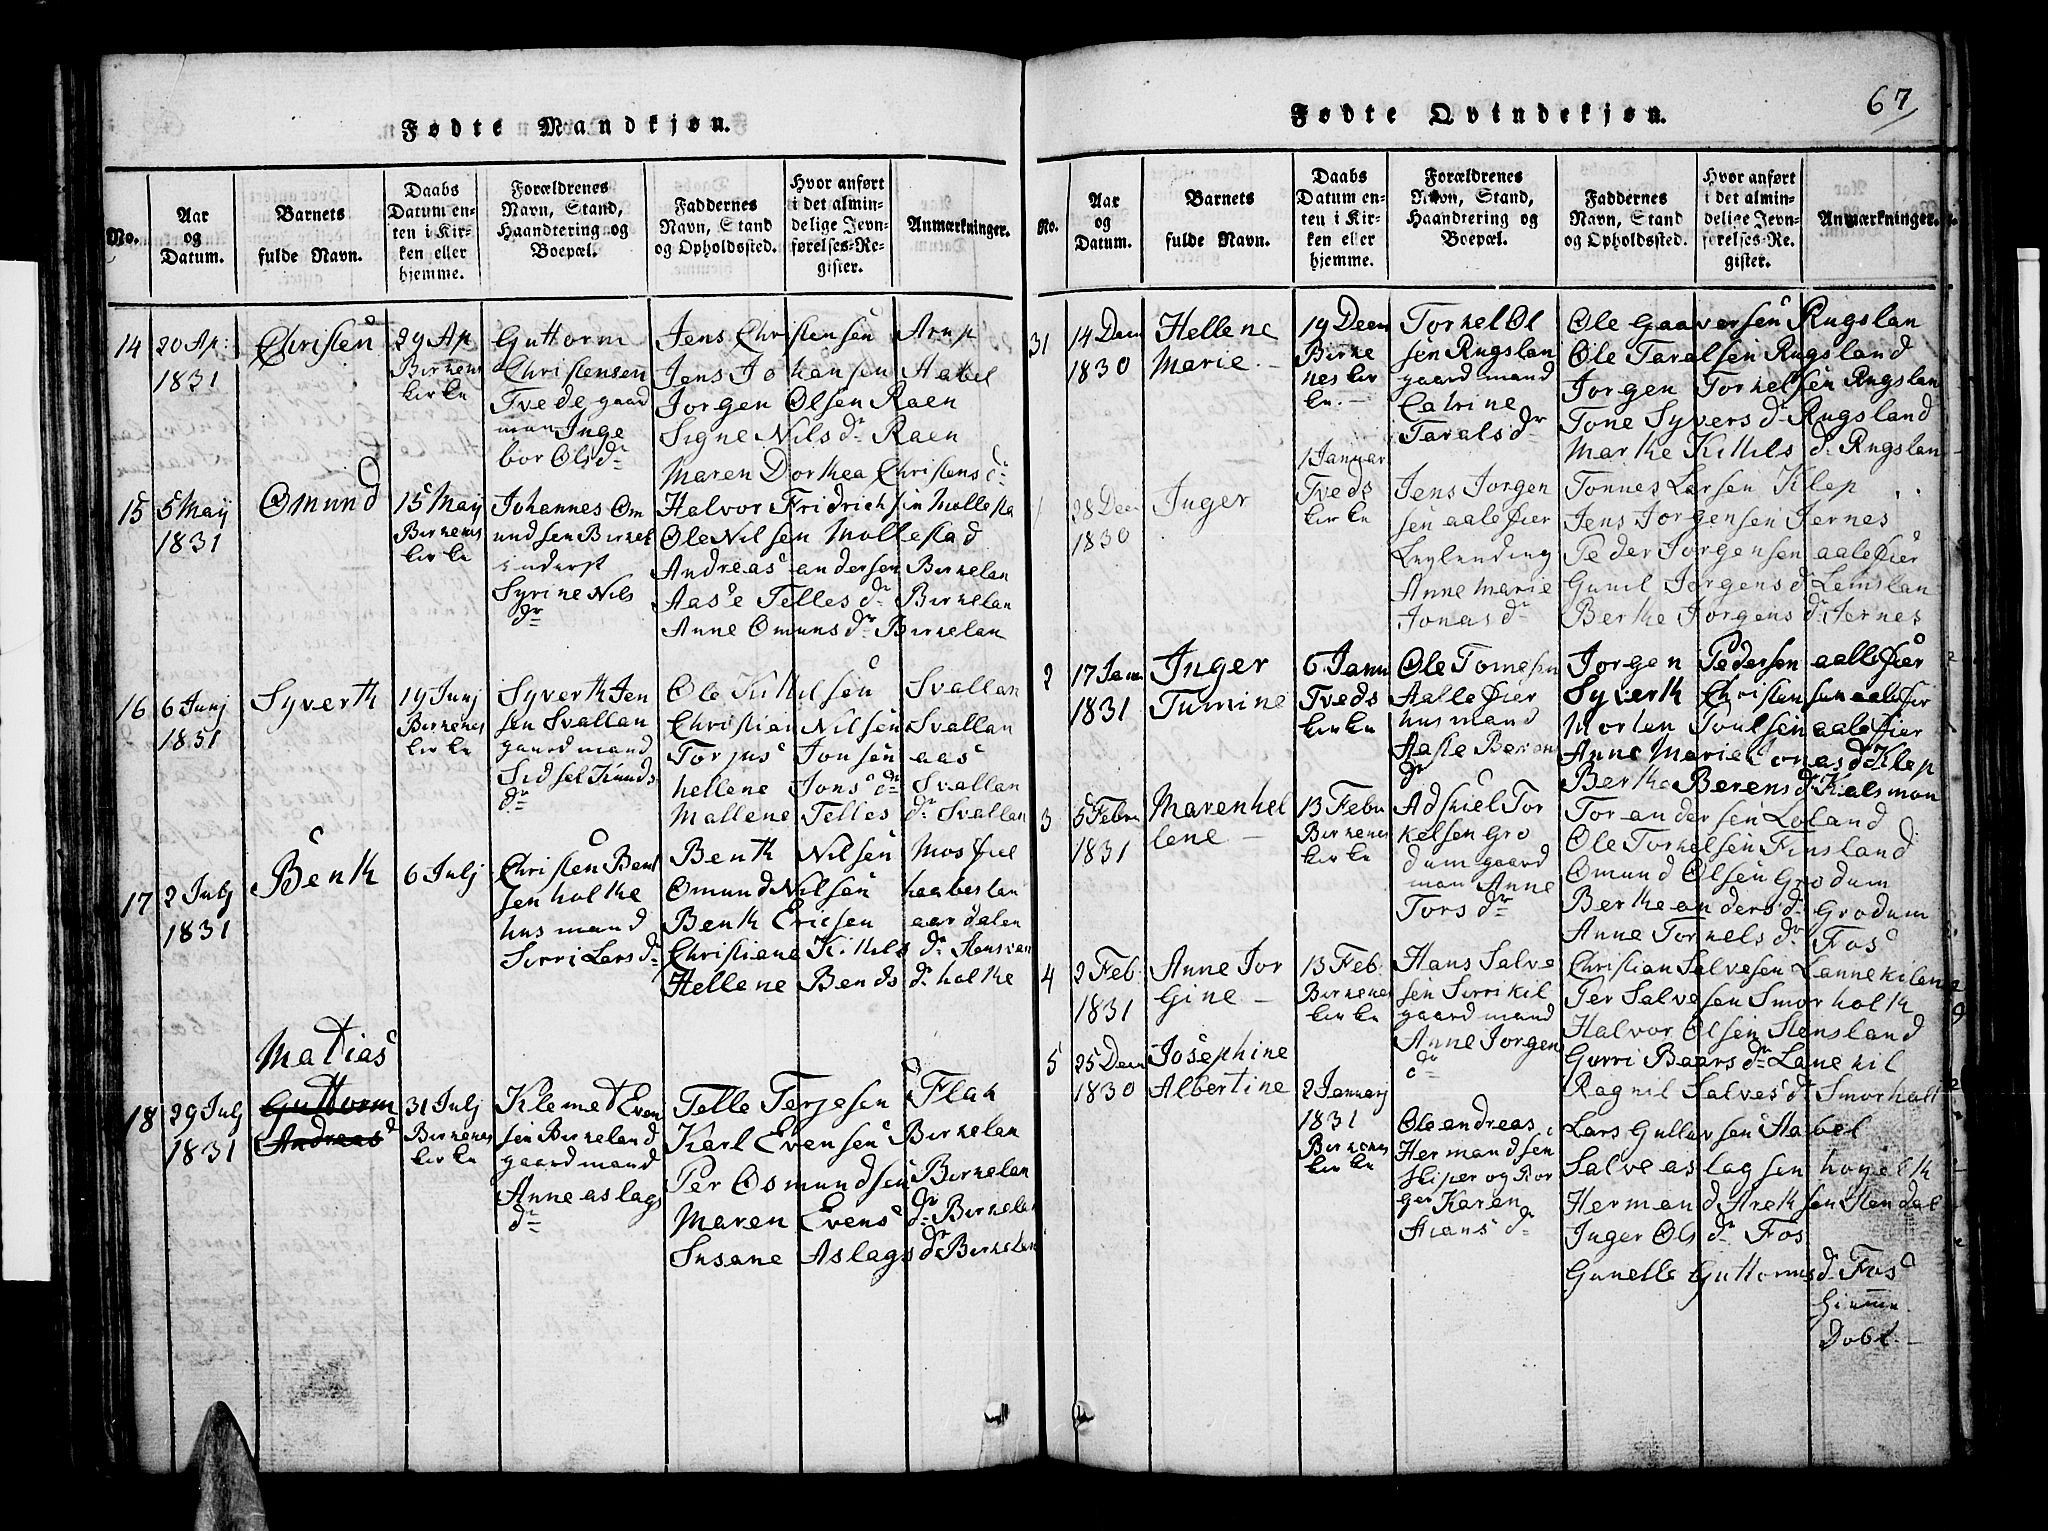 Fødte Mandkjøn.
No.
Aar
og
Datum.
Barnets
fulde Navn.
Daabs
Datum en-
ten i Kir-
ken eller
hjemme.
Forældrenes
Navn, Stand,
Haandtering og
Boepæl.
Faddernes
Navn, Stand
og Opholdssted.
Hvor anført
i det almin-
delige Jevn-
førelses-Re-
gister.
Anmærkninger.
14
20 Ap:
1831
Christen
29 Ap
Birkenes
kirke
Guttorm
Christensen
Tvede gaard
man Inge
bor Olsdr
Jens Christensen Arup
Jens Johansen Habel
Jorgen Olsen Raen
Signe Nilsdr Raen
Maren Dorthea Christensdr
15
5 Maij
1831
Omund
15 Maij
Birkenes
kirke
Johannes Om
undsen Birkel
inderst
Syrine Nils
dr
Halvor Fridrichsen Mollesta
Ole Nilsen Mollestad
Andreas andersen Birkelan
Aase Tellesdr Birkelan
Anne Omunsdr Birkelan
16
6 Junj
1831
Syverth
19 Junj
Birkenes
kirke
Syverth Jen
sen Svallan
gaardmand
Sidsel Knuds
dr
Ole Kittilsen Svallan
Christian Nilsen Svallan
Torjus Jonsen aas
Hellene Jonsdr Svallan
Mallene Tellesdr Svallan
17
2 Julj
1831
Benth
6 Julj
Christen Bent
sen holthe
husmand
Sirri Larsdr
Benth Nilsen Mosfiel
Omund Nilsen haabeslan
Benth Ericsen aardalen
Christiane Kittilsdr Stensvan
Hellene Bendsdr holthe
18
29 Julj
1831
Mathias
Guttorm
Andreas
31 Julj
Birkenes
kirke
Klemet Even
sen Birkeland
gaardmand
Anne aslags
dr
Telle Terjesen Flak
Karl Evensen Birkelan
Per Osmundsen Birkelan
Maren Evensdr Birkelan
Susane Aslagsdr Birkelan
Fødte Qvindekjøn.
67
No.
Aar
og
Datum.
Barnets
fulde Navn.
Daabs
Datum en-
ten i Kir-
ken eller
hjemme.
Forældrenes
Navn, Stand,
Haandtering og
Boepæl.
Faddernes
Navn, Stand
og Opholdssted.
Hvor anført
i det almin-
delige Jevn-
førelses-Re-
gister.
Anmærkninger.
31
14 Decm
1830
Hellene
Marie
19 Decm
Birke
nes kir
ke
Torkel Ol
sen Rugslan
gaardmand
Catrine
Taralsdr
Ole Gaaversen Rugslan
Ole Taralsen Rugsland
Jorgen Torkelsen Rugslan
Tone Syversdr Rugsland
Marthe Kittilsdr Rugslan
1
28 Decm
1830
Inger
1 Januar
Tveds
kirke
Jens Jorgen
sen aalefier
Leylending
Anne Marie
Jonasdr
Tonnes Larsen Klep
Jens Jorgensen Jernes
Peder Jorgensen aalefier
Gunil Jorgensdr Lemslan
Berthe Jorgensdr Jernes
2
17 Jan
1831
Inger
Tumine
6 Janu
Tveds
kirke
Ole Tomesen
Aallefier
husmand
Aasle Beron
dr
Jorgen Pedersen aallefier
Syverth Christensen aalefier
Morten Poulsen aalefier
Anne Marie Jonasdr Klep
Berthe Berensdr Kalsmon
3
5 Febru
1831
Marenhel
lene
13 Febr
Birkenes
kirke
Adskiel Tor
kelsen Gro
dum gaard
man Anne
Torsdr
Tor andersen Loland
Ole Torkelsen Finsland
Omund Olsen Grodum
Berthe andersdr Grodum
Anne Torkelsdr Fos
4
2 Feb.
1831
Anne Jor
Gine
13 Feb.
Birkenes
kirke
Hans Salve
sen Sirrikil
gaardmand
Anne Jorgen
dr
Christian Salvesen Lannekilen
Per Salvesen Smorholth
Halvor Olsen Stensland
Gurri Baarsdr Lanekil
Ragnil Salvesdr Smorholt
5
25 Decm
1830
Josephine
Albertine
2 Januarj
1831
Birkenes
kirke
Ole andreas
Hermandsen
skiper og Bor
ger Karen
Stiansdr
Lars Gullavsen Habel
Salve aslagsen hogelth
Hermand Arethsen Stendal
Inger Olsdr Fos
Gunelle Guttormsdr Fos
Hiemme
Dobt